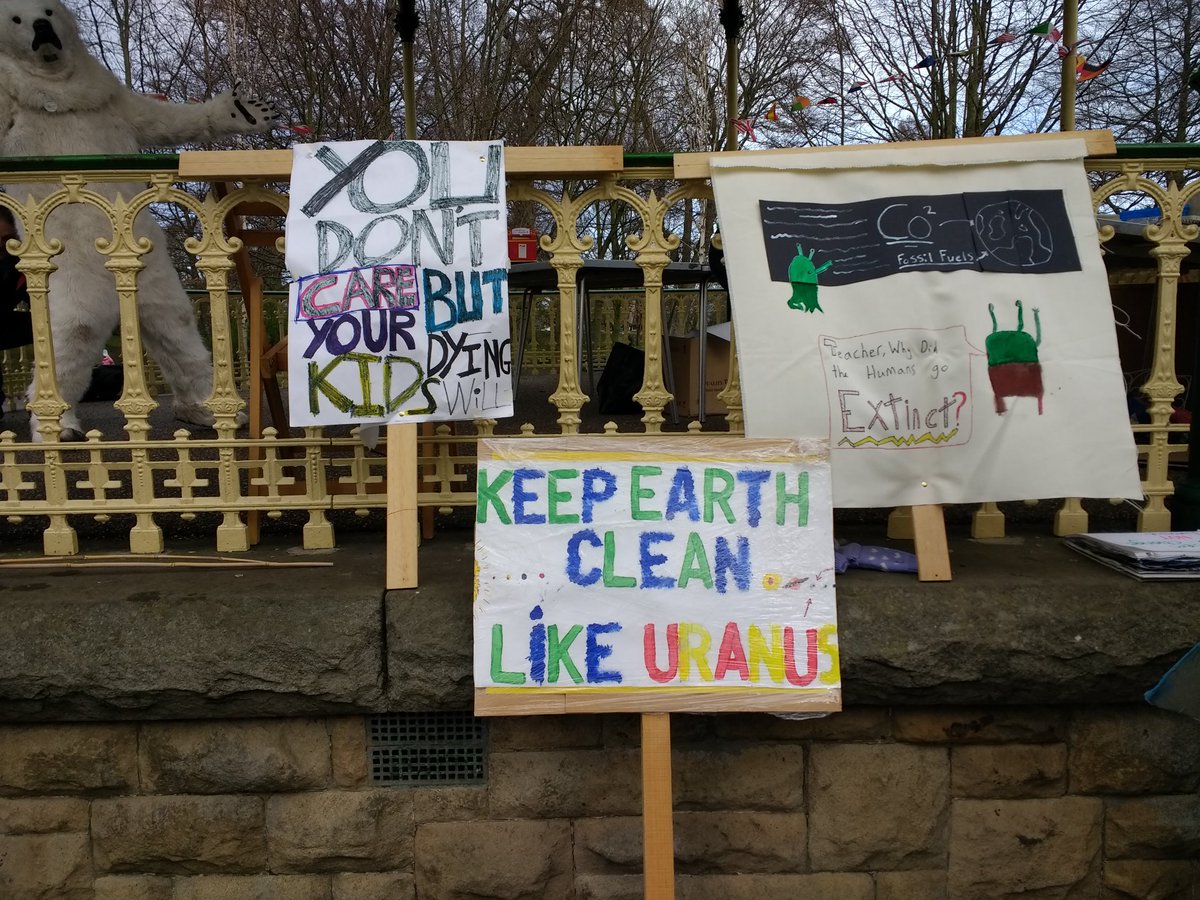 YOU
DON'T
CARE BUT
YOUR DYING
KIDS Will
Co²
Fossil Fuels
Teacher, Why Did
the Humans go
Extinct?
KEEP EARTH
CLEAN
LIKE URANUS